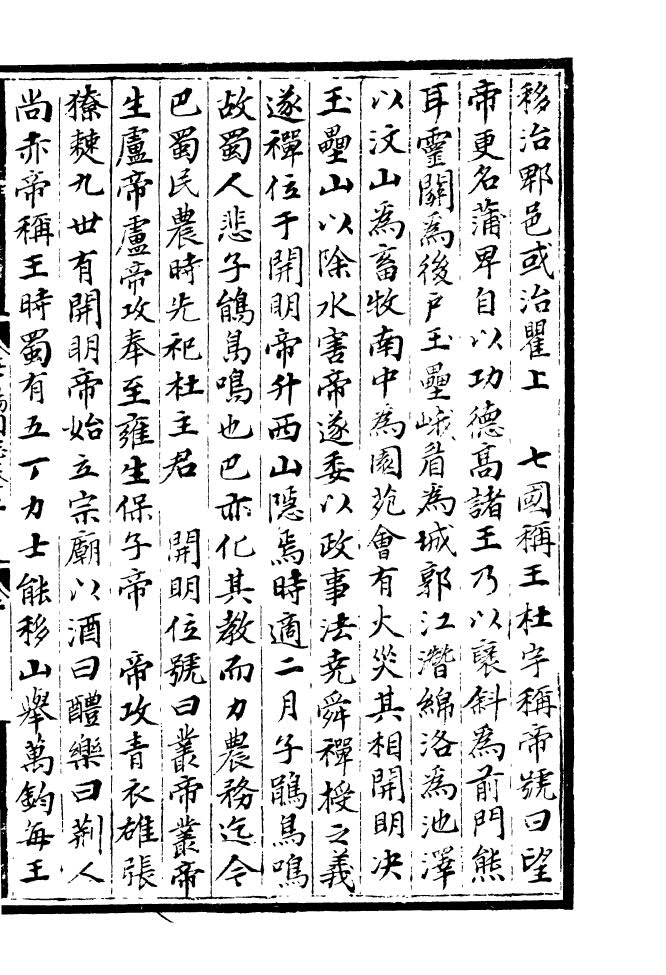 移治郫邑或治瞿上　七國稱王杜宇稱帝號曰望
帝更名蒲卑自以功德髙諸王乃以襃斜為前門熊
耳靈關為後户玉壘峨眉為城郭江潛綿洛為池澤
以汶山為畜牧南中為園苑會有火災其相開明决
玉壘山以除水害帝遂委以政事法堯舜禪授之義
遂禪位于開明帝升西山隱焉時適二月子鵑鳥鳴
故蜀人悲子鵑鳥鳴也巴亦化其教而力農務迄今
巴蜀民農時先祀杜主君　開明位號曰叢帝叢帝
生盧帝盧帝攻奉至雍生保子帝　帝攻青衣雄張
獠僰九世有開明帝始立宗廟以酒曰醴樂曰荆人
尚赤帝稱王時蜀有五丁力士能移山舉萬鈞每王